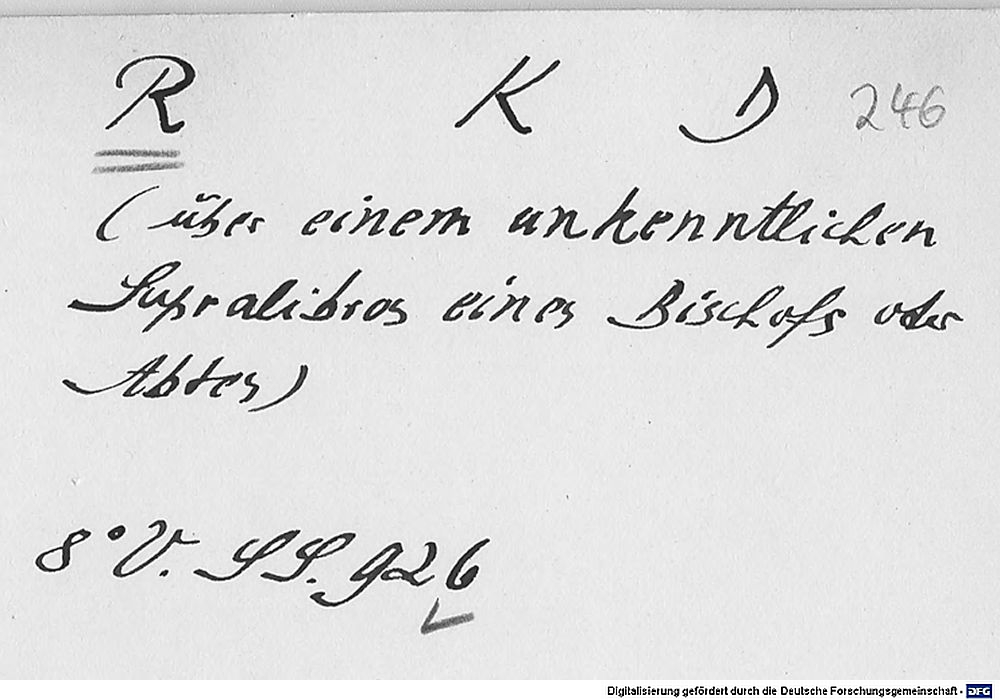 R K D 246
(über einem unkenntlichen
Supralibros eines Bischofs oder
Abtes)
8° V. SS. 926
Digitalisierung gefördert durch die Deutsche Forschungsgemeinschaft - DFG